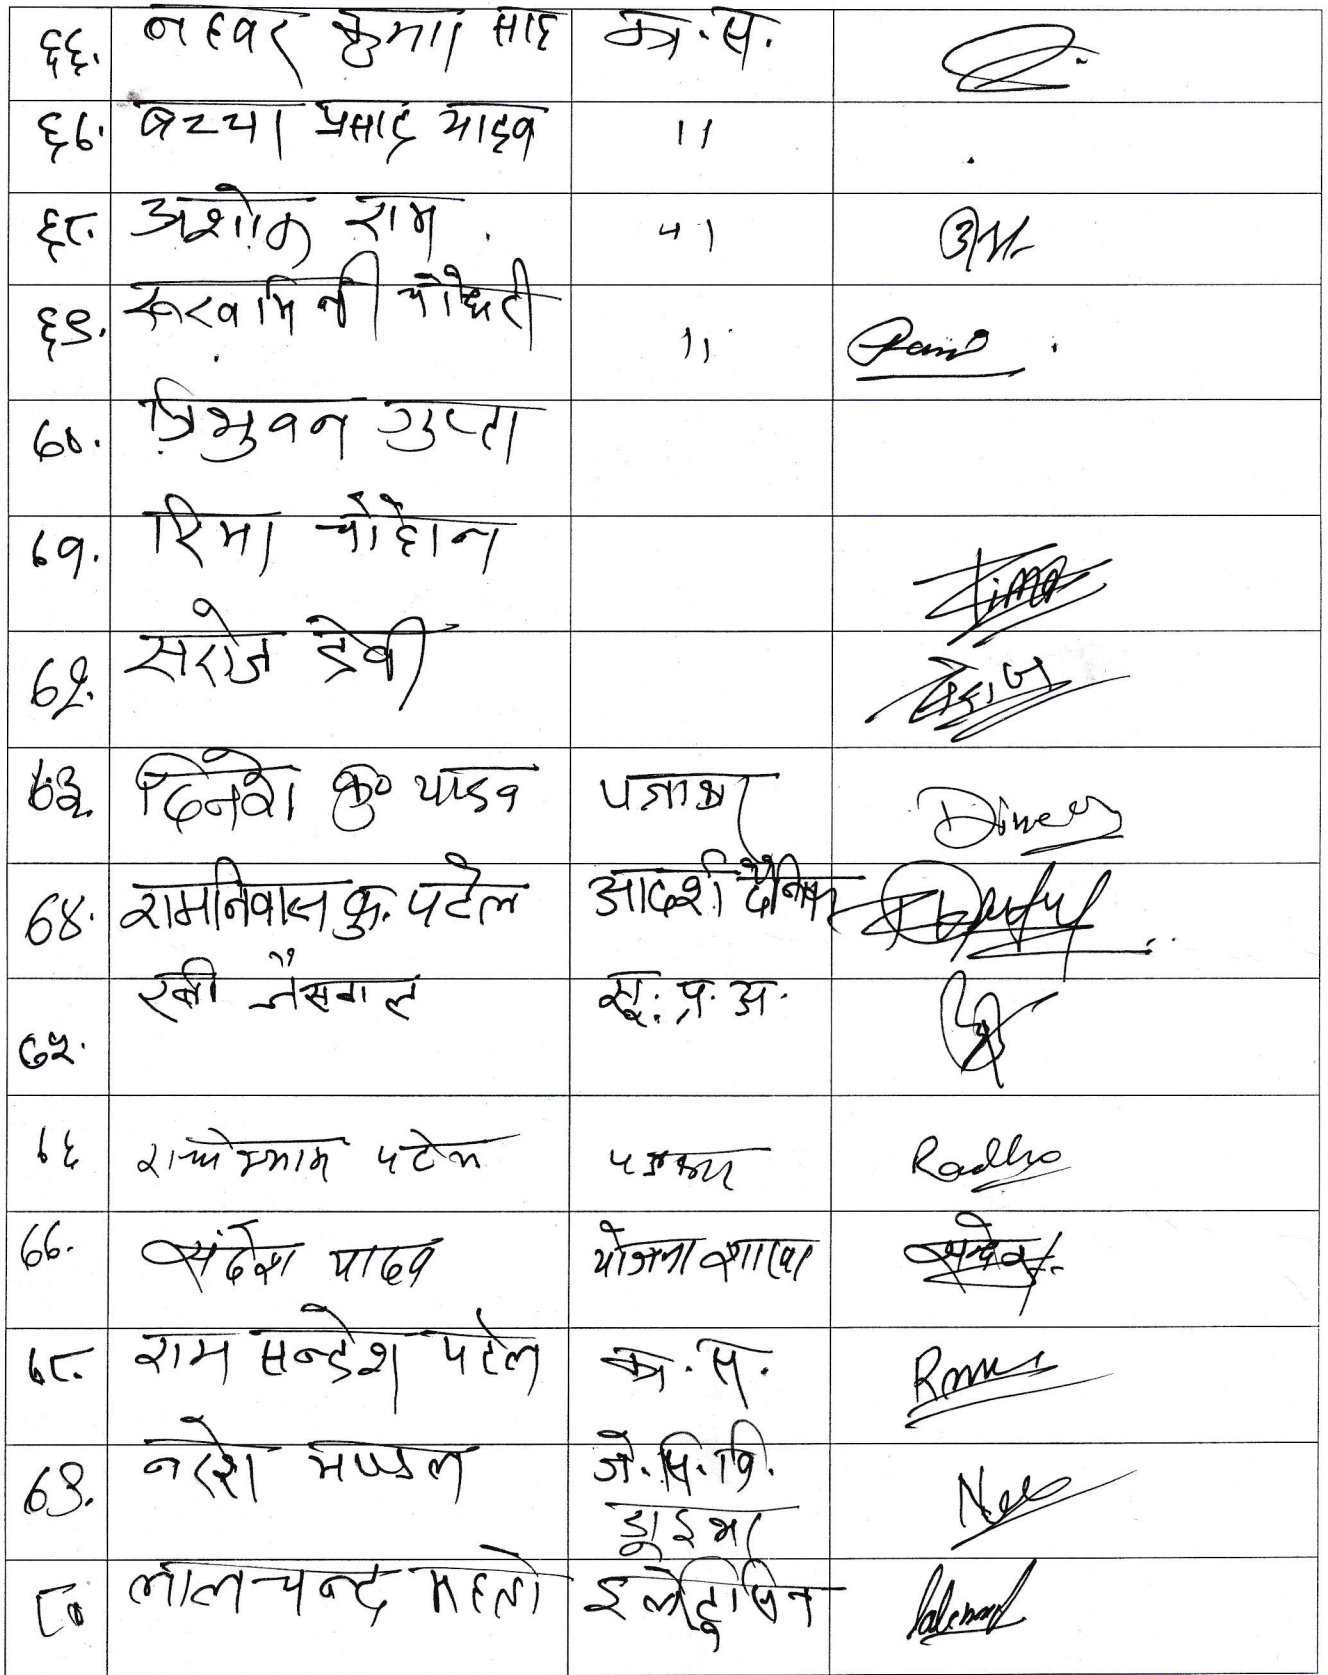 ६६. नहवर कुमार साह का.स.
६७. बच्चा प्रसाद यादव ''
६८. अशोक राम ''
६९. चौधरी ''
७०. त्रिभुवन गुप्ता
७१. रिमा चौहान
७२. सरोज देवी सरोज
७३. दिनेश कु॰ यादव पत्रकार
७४. रामनिवास कु. पटेल आदर्श दैनिक
७५. रवी जैसवाल सू. प्र. अ.
७६ राधेश्याम पटेल पत्रकार Radhe
७७. संदेश यादव योजना शाखा
७८. राम सन्देश पटेल का.स.
७९. नरेश मण्डल जे.सि.वि.
ड्राइभर
८० लालचन्द महतो